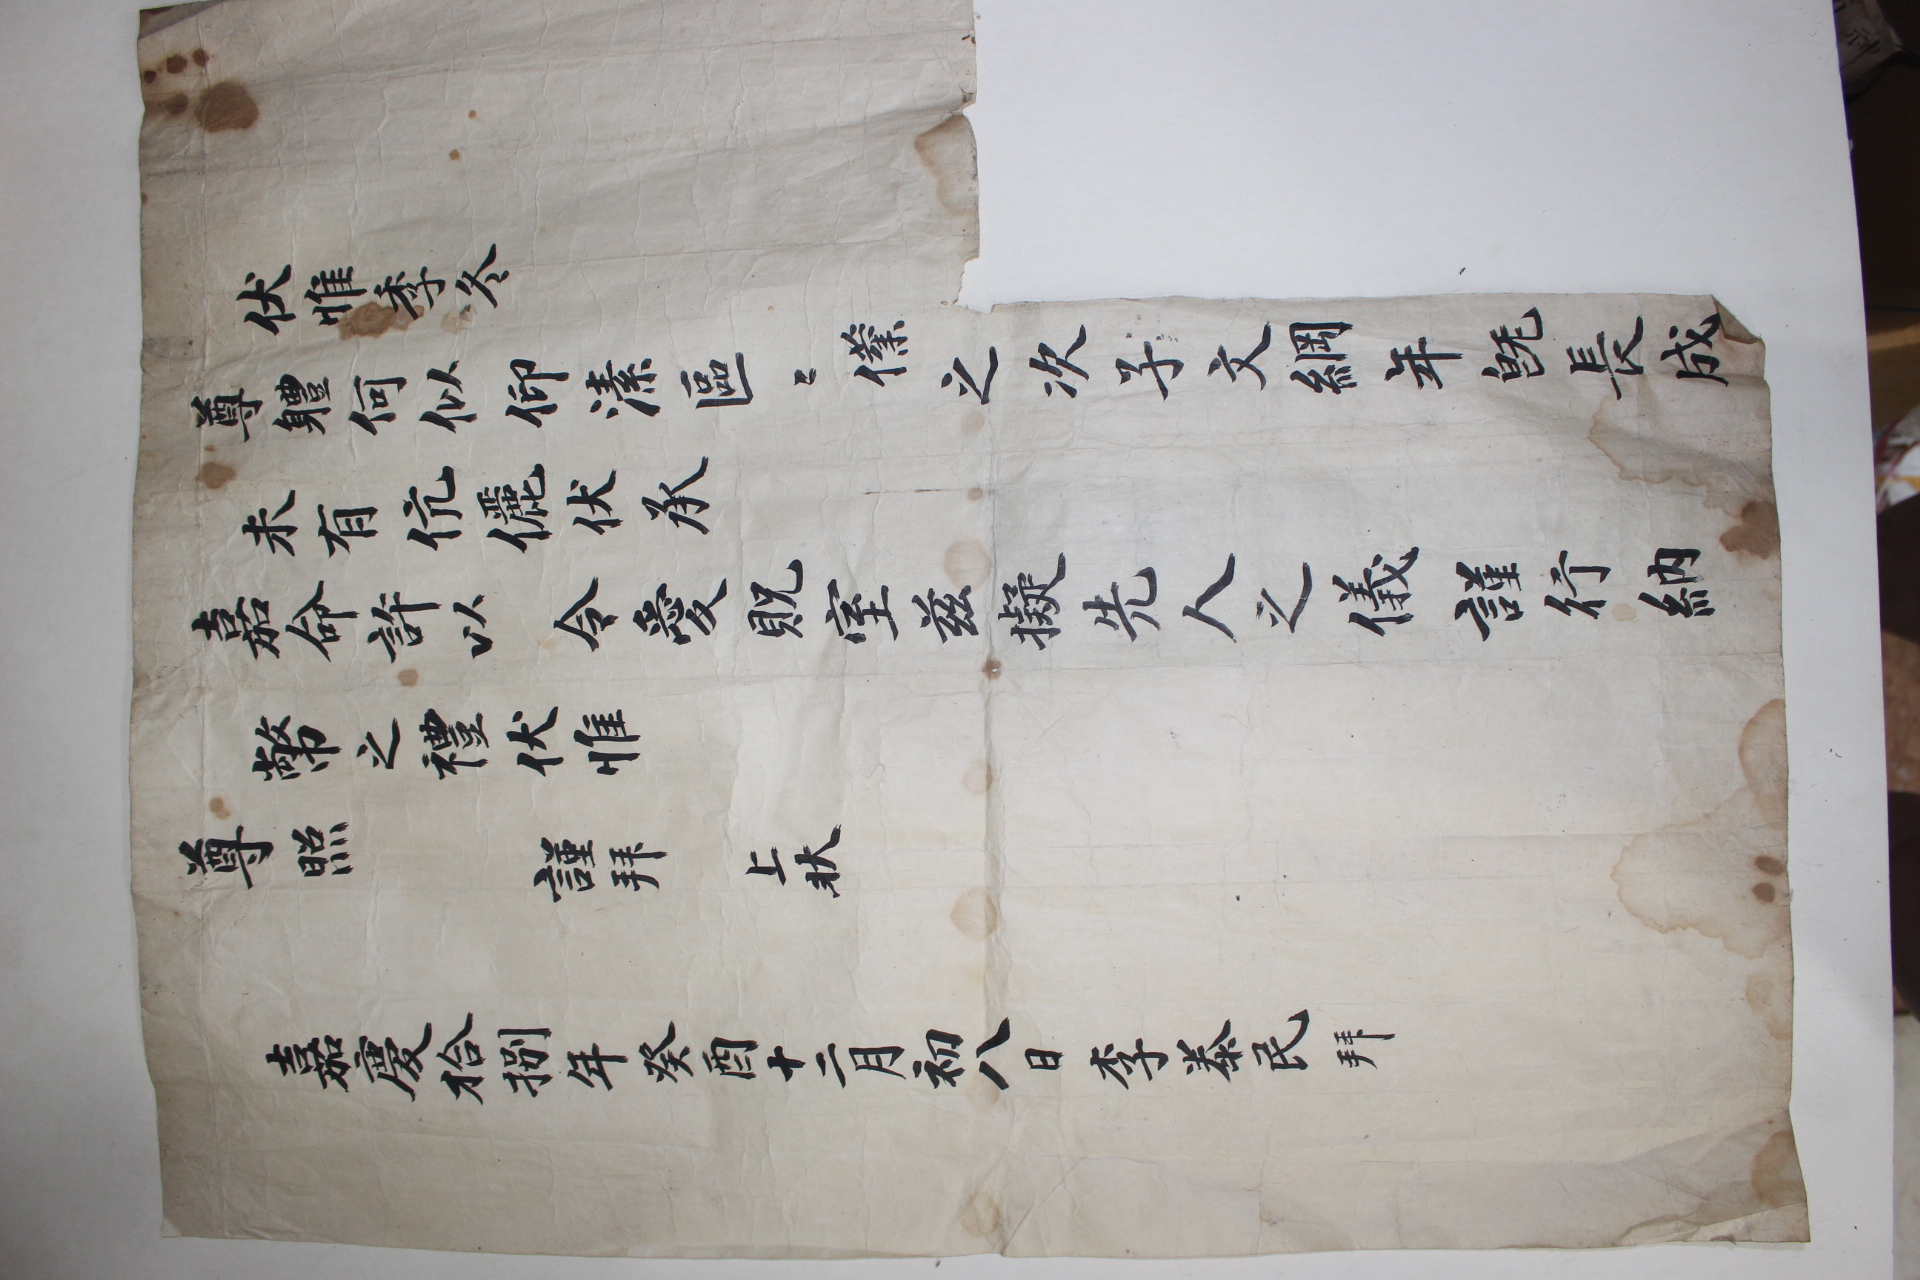 伏惟季冬
尊軆何似仰溸區〻僕之次子文綱年旣長成
未有伉儷伏承
嘉命許以令愛貺室玆擬先人之儀謹行納
幣之禮伏惟
尊照 謹拜 上狀
嘉慶拾捌年癸酉十二月初八日 李泰民 拜